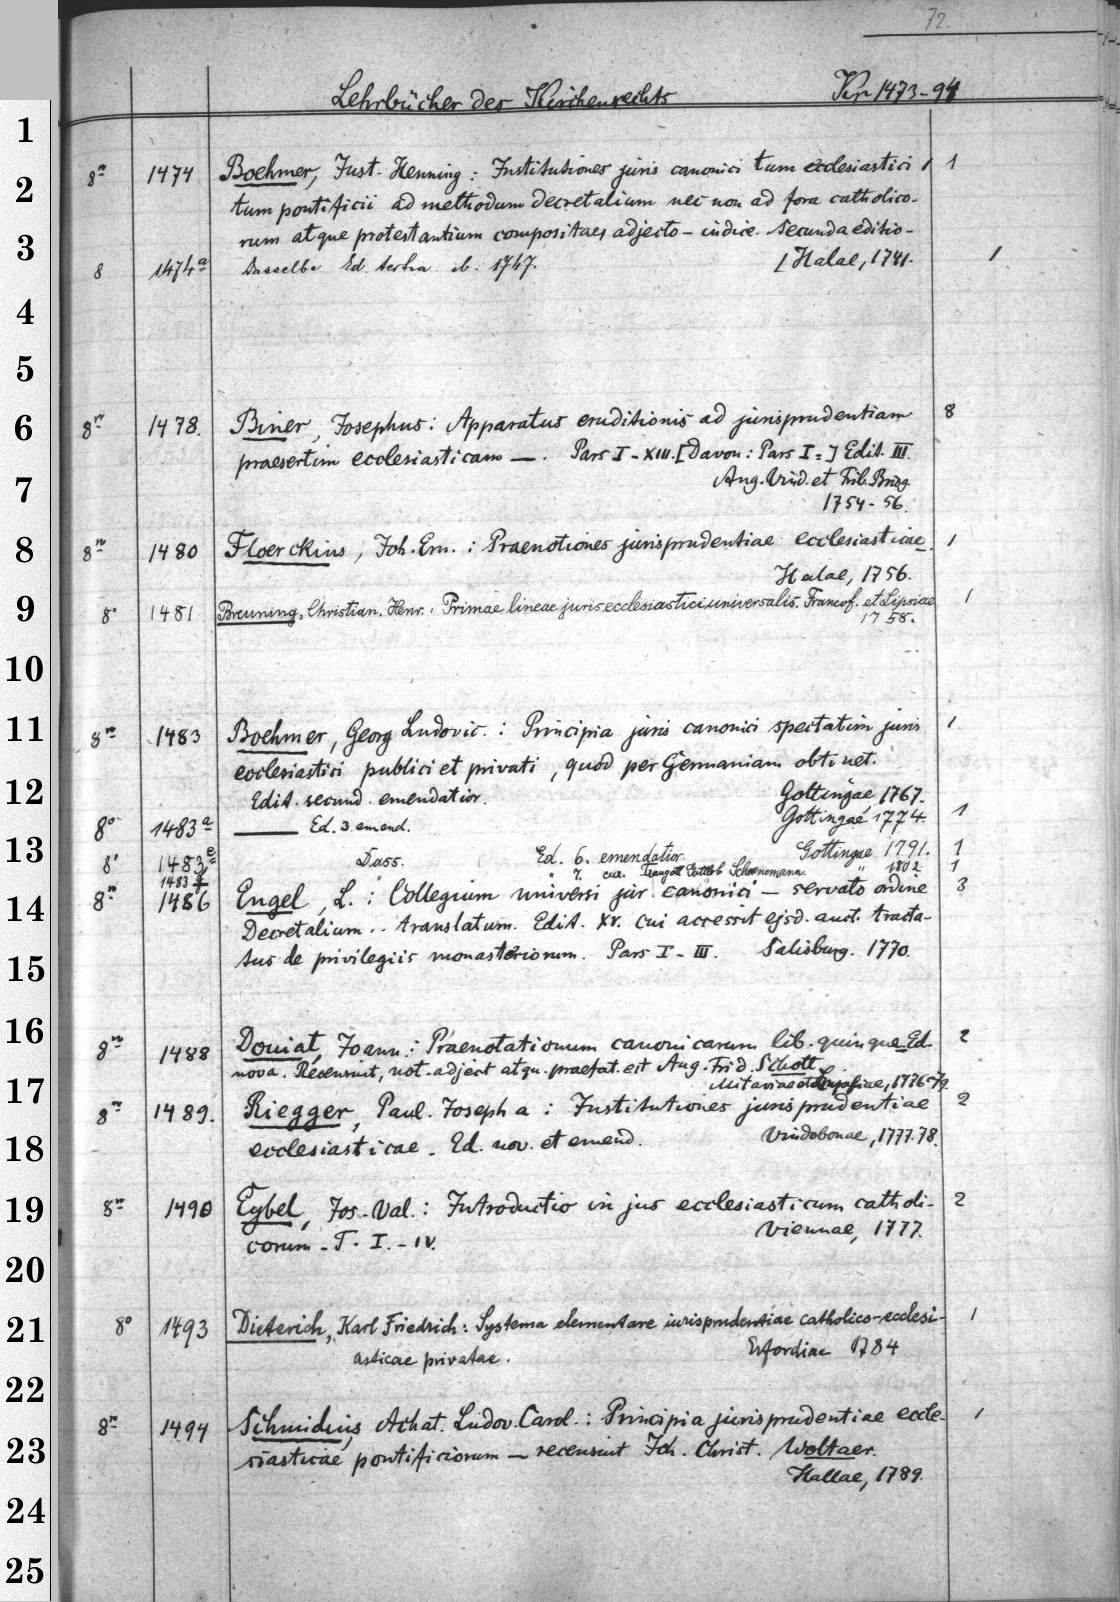 72.
Lehrbücher des Kirchenrechts Kr 1473-94
1
8º 1474 Boehmer, Just. Henning: Institutiones juris canonici tum ecclesiastici 1
2
tum pontificii ad methodum decretalium nec non ad fora catholico-
rum atque protestantium compositaes adjecto - indice. Secunda editio-
3
[Halae, 1741.
8 1474a Dasselbe Ed. tertia ib. 1747. 1
4
5
6
8º 1478. Biner, Josephus: Apparatus eruditionis ad jurisprudentiam 8
praesertim ecclesiasticam —. Pars I - XIII. [Davon: Pars I=] Edit. III.
7
Aug. Vind. et Frib. Brisg.
1754-56.
8
8º 1480 Floerckius, Joh. Ern.: Praenotiones jurisprudentiae ecclesiasticae. 1
Halae, 1756.
9
8º 1481 Breuning, Christian. Henr.: Primae lineae juris ecclesiastici universalis. Francof. et Lipsiae 1
1758.
10
11
8º 1483 Boehmer, Georg Ludovic.: Principia juris canonici spectatim juris 1
ecclesiastici publici et privati, quod per Germaniam obtinet.
12
Edit. secund. emendatior. Gottingae, 1767.
8º 1483a —— Ed. 3. emend. Gottingae 1774. 1
13
8º 1483e Dass. Ed. 6. emendatior. Gottingae 1791. 1
1483g " 7. cur. Traugott Gottlob Schoenemann. " 1802 1
14
8º 1486 Engel, L.: Collegium universi jur. canonici — servato ordine 3
Decretalium .. translatum. Edit. XV. cui accessit ejsd. auct. tracta-
15
tus de privilegiis monasteriorum. Pars I - III. Salisburg. 1770.
16
8º 1488 Doujat, Joann.: Praenotationum canonicarum lib. quinque Ed. 2
nova. Recensuit, not. adject atqu. praefat. est Aug. Frid. Schott.
17
Mitaviae et Lipsiae, 1776-79.
8º 1489. Riegger, Paul. Joseph a: Institutiones jurisprudentiae 2
18
ecclesiasticae. Ed. nov. et emend. Vindobonae, 1777.78.
19
8º 1490 Eybel, Jos. Val.: Introductio in jus ecclesiasticum catholi- 2
corum - T. I. - IV. Viennae, 1777.
20
21
8º 1493 Dieterich, Karl Friedrich: Systema elementare iurisprudentiae catholico-ecclesi- 1
asticae privatae. Erfordiae 1784
22
8º 1494 Schmidius, Achat. Ludov. Carol.: Principia jurisprudentiae eccle- 1
23
siasticae pontificiorum — recensuit Joh. Christ. Woltaer.
Hallae, 1789.
24
25